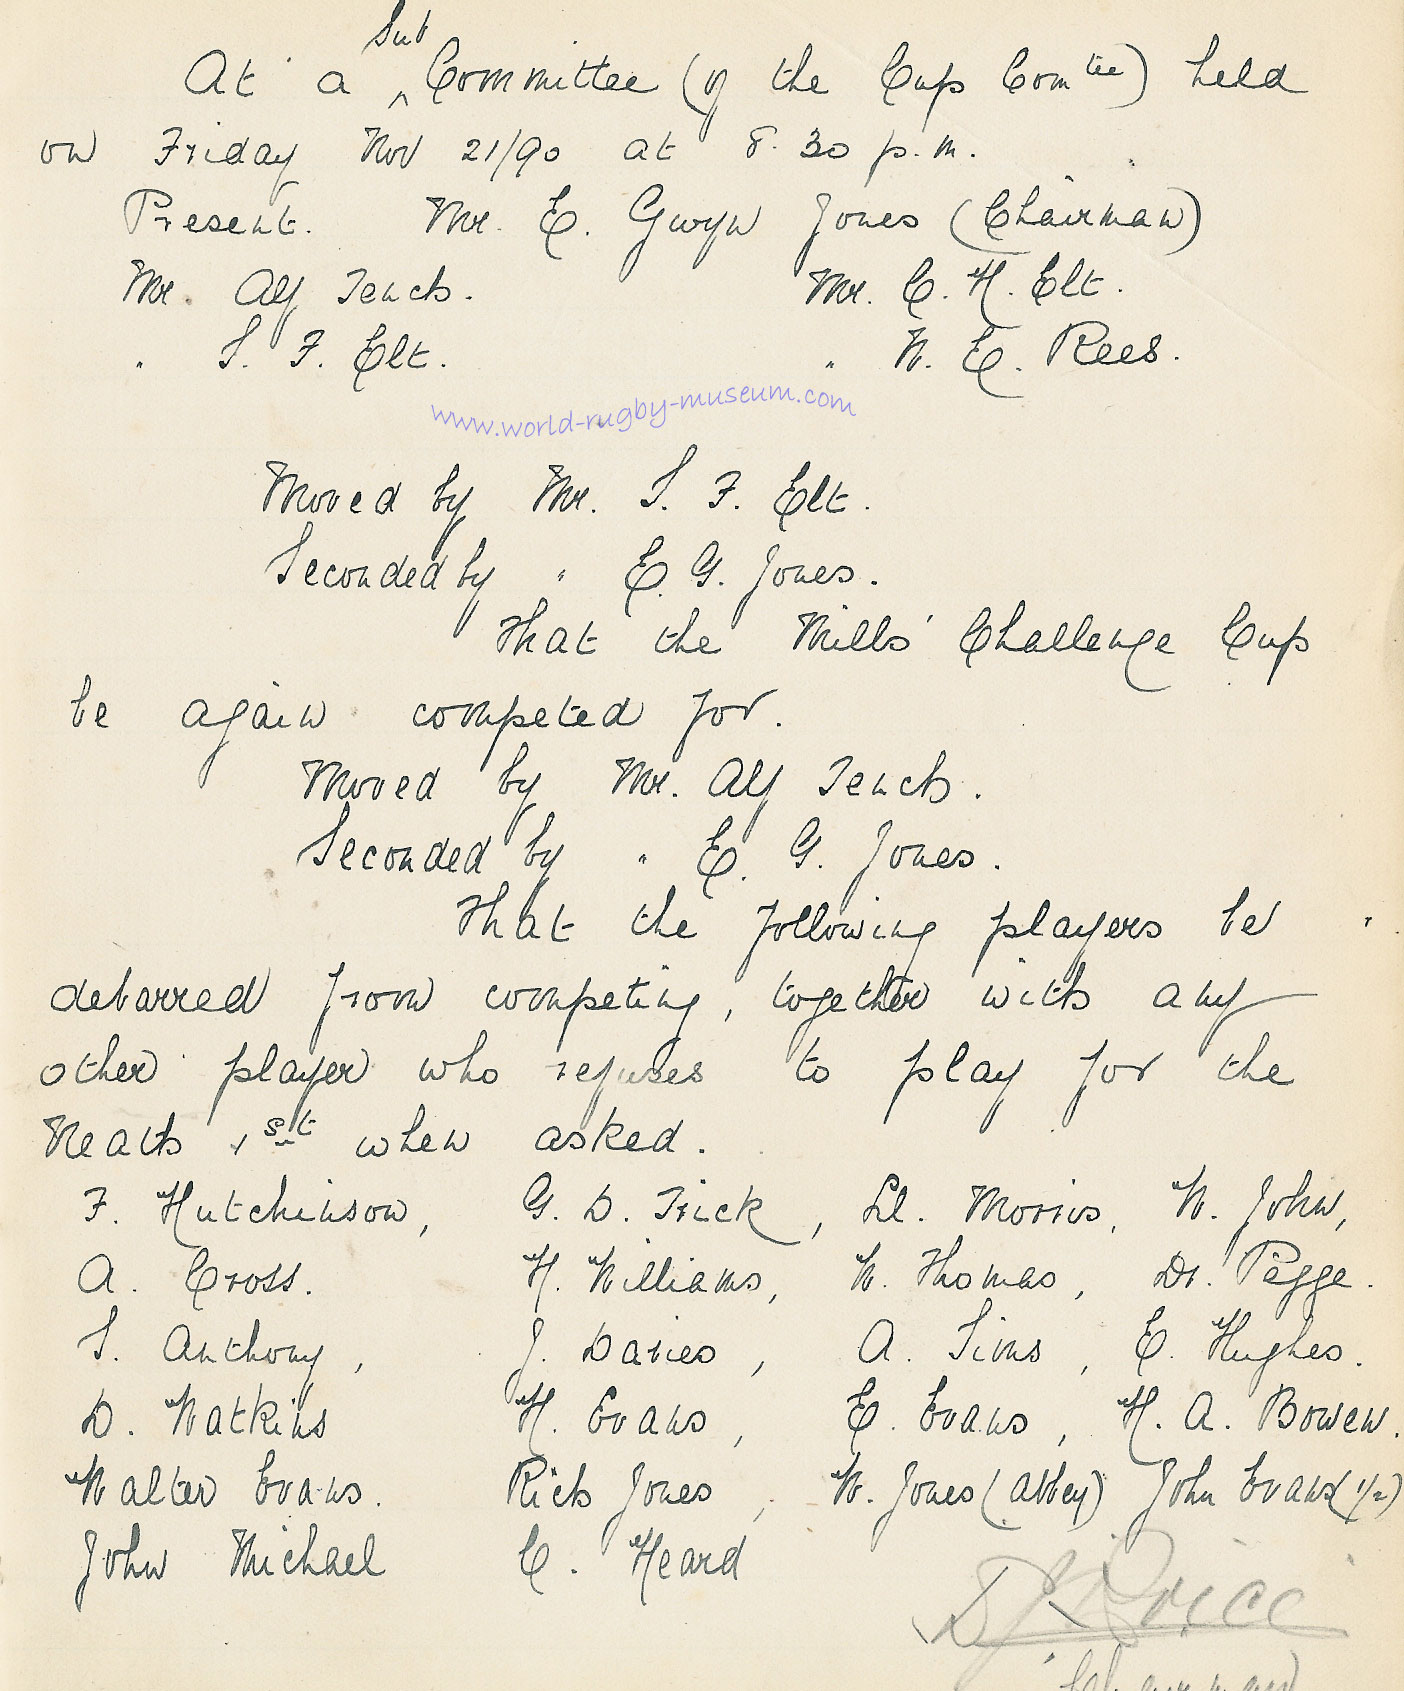 At a Sub Committee (of the Cup Comtee) held
on Friday Nov 21/90 at 8.30 p.m.
Present. Mr. E. Gwyn Jones (Chairman)
Mr. Alf Tench. Mr. C. H. Elt.
" S. F. Elt. " W. E. Rees.
www.world-rugby-museum.com
Moved by Mr. S. F. Elt.
Seconded by " E. G. Jones.
That the Mills' Challenge Cup
be again competed for.
Moved by Mr. Alf Tench.
Seconded by " E. G. Jones.
That the following players be
debarred from competing, together with any
other player who refuses to play for the
Neath 1st when asked.
F. Hutchinson, G. D. Trick, Ll. Morris, W. John,
A. Cross. H. Williams, W. Thomas, Dr. Pegge.
S. Anthony, J. Davies, A. Sims, E. Hughes.
D. Watkins H. Evans, E. Evans, H. A. Bowen.
Walter Evans. Rich Jones, W. Jones (Abbey) John Evans (1/2)
John Michael C. Heard
Price
Chairman